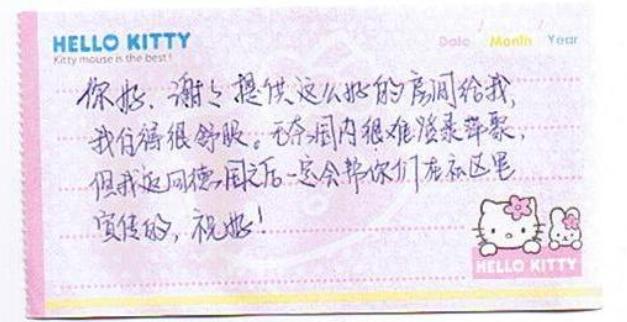 HELLO KITTY
Kitty mouse is the best!
Date / Month / Year
你好、谢谢提供这么好的房间给我,
我住得很舒服。无奈国内很难登录苹歌,
但我返回德国之后一定会帮你们在社区里
宣传的,祝好!
HELLO KITTY